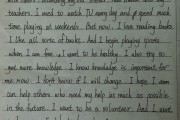 teachers. I used to watch TV every day and spend much
time playing at weekends. But now, I love reading books.
I like all sorts of books. And I begin playing sports
when I am free. I want to be healthy. I also try to
get more knowledge. I know knowledge is important for
me now. I don't know if I will change. I hope I can
can help others who need my help as much as possible
in the future. I want to be a volunteer. And I want